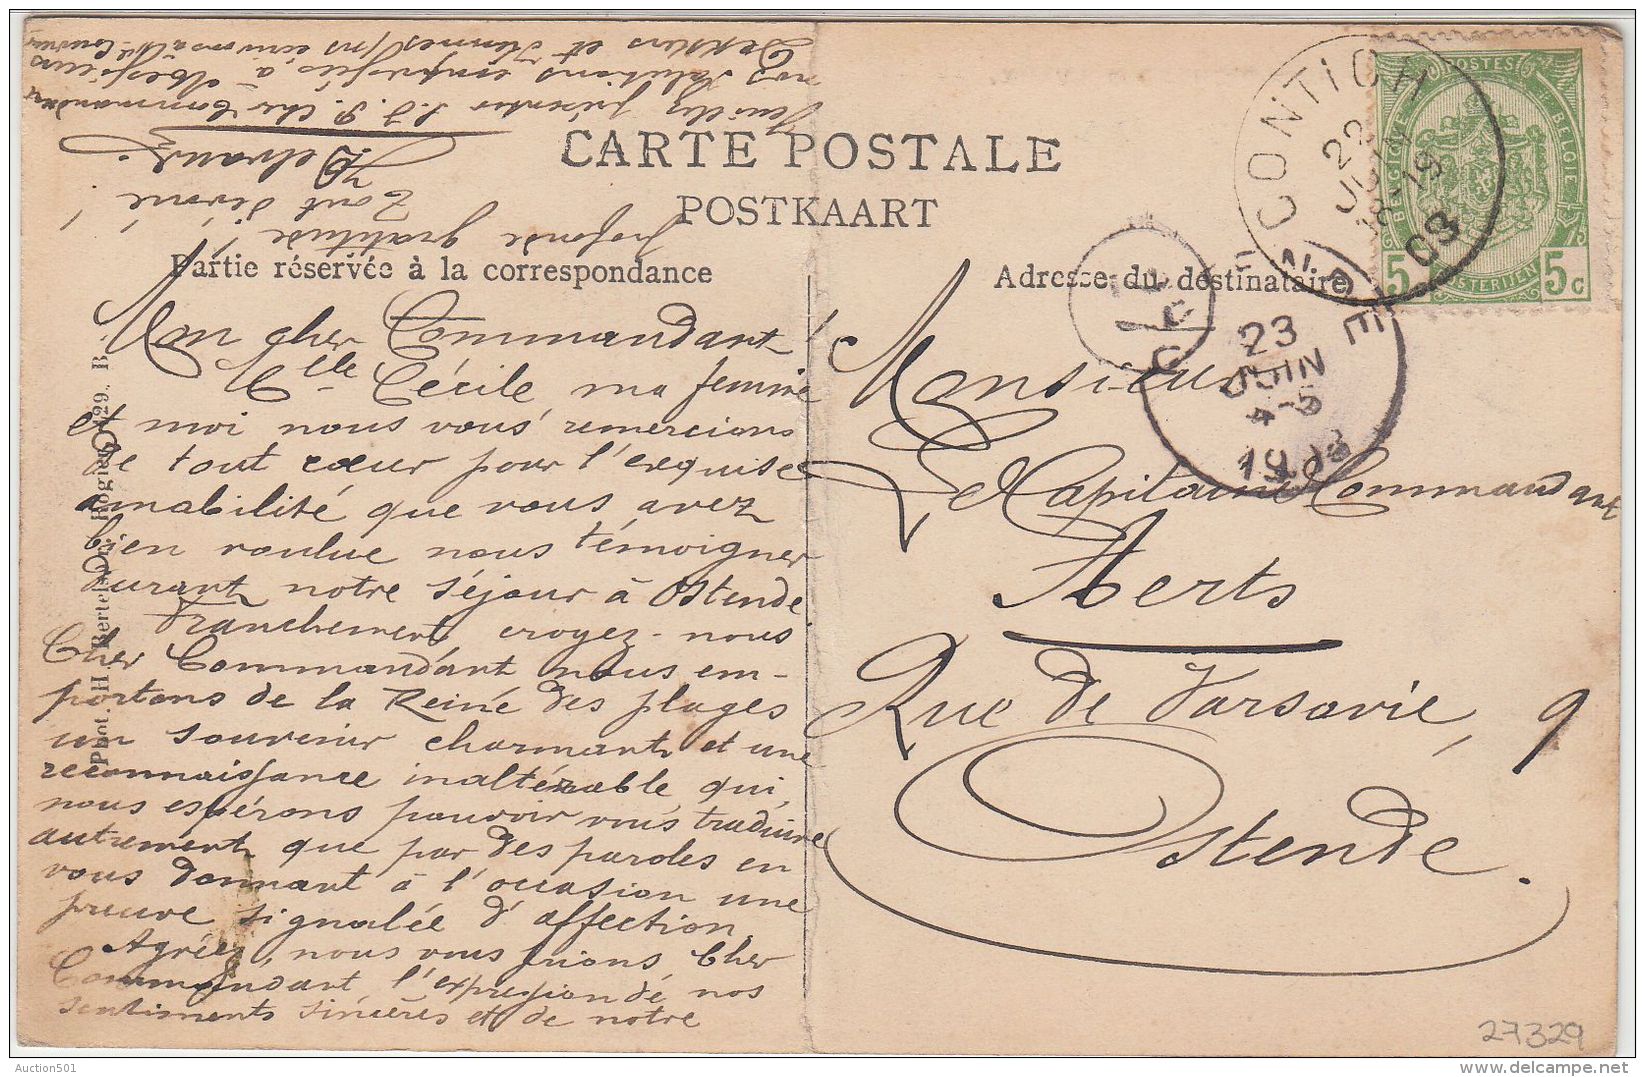 CARTE POSTALE
POSTKAART
Partie réservée à la correspondance
Adresse du destinataire
Mon cher Commandant!
Clle Cécile ma femme
et moi nous vous remercions
de tout cœur pour l'exquise
amabilité que vous avez
bien voulue nous témoigner
durant notre séjour à Ostende
Franchement croyez-nous
Cher Commandant nous em-
portons de la Reine des plages
un souvenir charmant et une
reconnaissance inaltérable qui
nous espérons pouvoir vous traduire
autrement que par des paroles en
vous donnant à l'occasion une
preuve signalée d'affection.
Agréez, nous vous prions Cher
Commandant l'expression de nos
sentiments sincères et de notre
profonde gratitude!
Tout dévoué!
Delvaux
Veuillez présenter S.I.P. Cher Commandant
nos salutions empressées à Messieurs
et
Monsieur
Le Capitaine Commandant
Aerts
Rue de Varsovie, 9
Ostende.
CONTICH
22
JUIN
18-19
09
23
JUIN
4-5
POSTES
BELGIQUE
BELGIE
POSTERIJEN
5
5 c
Phot. H. Bertels, Rogier, 29. B
27329
Auction501